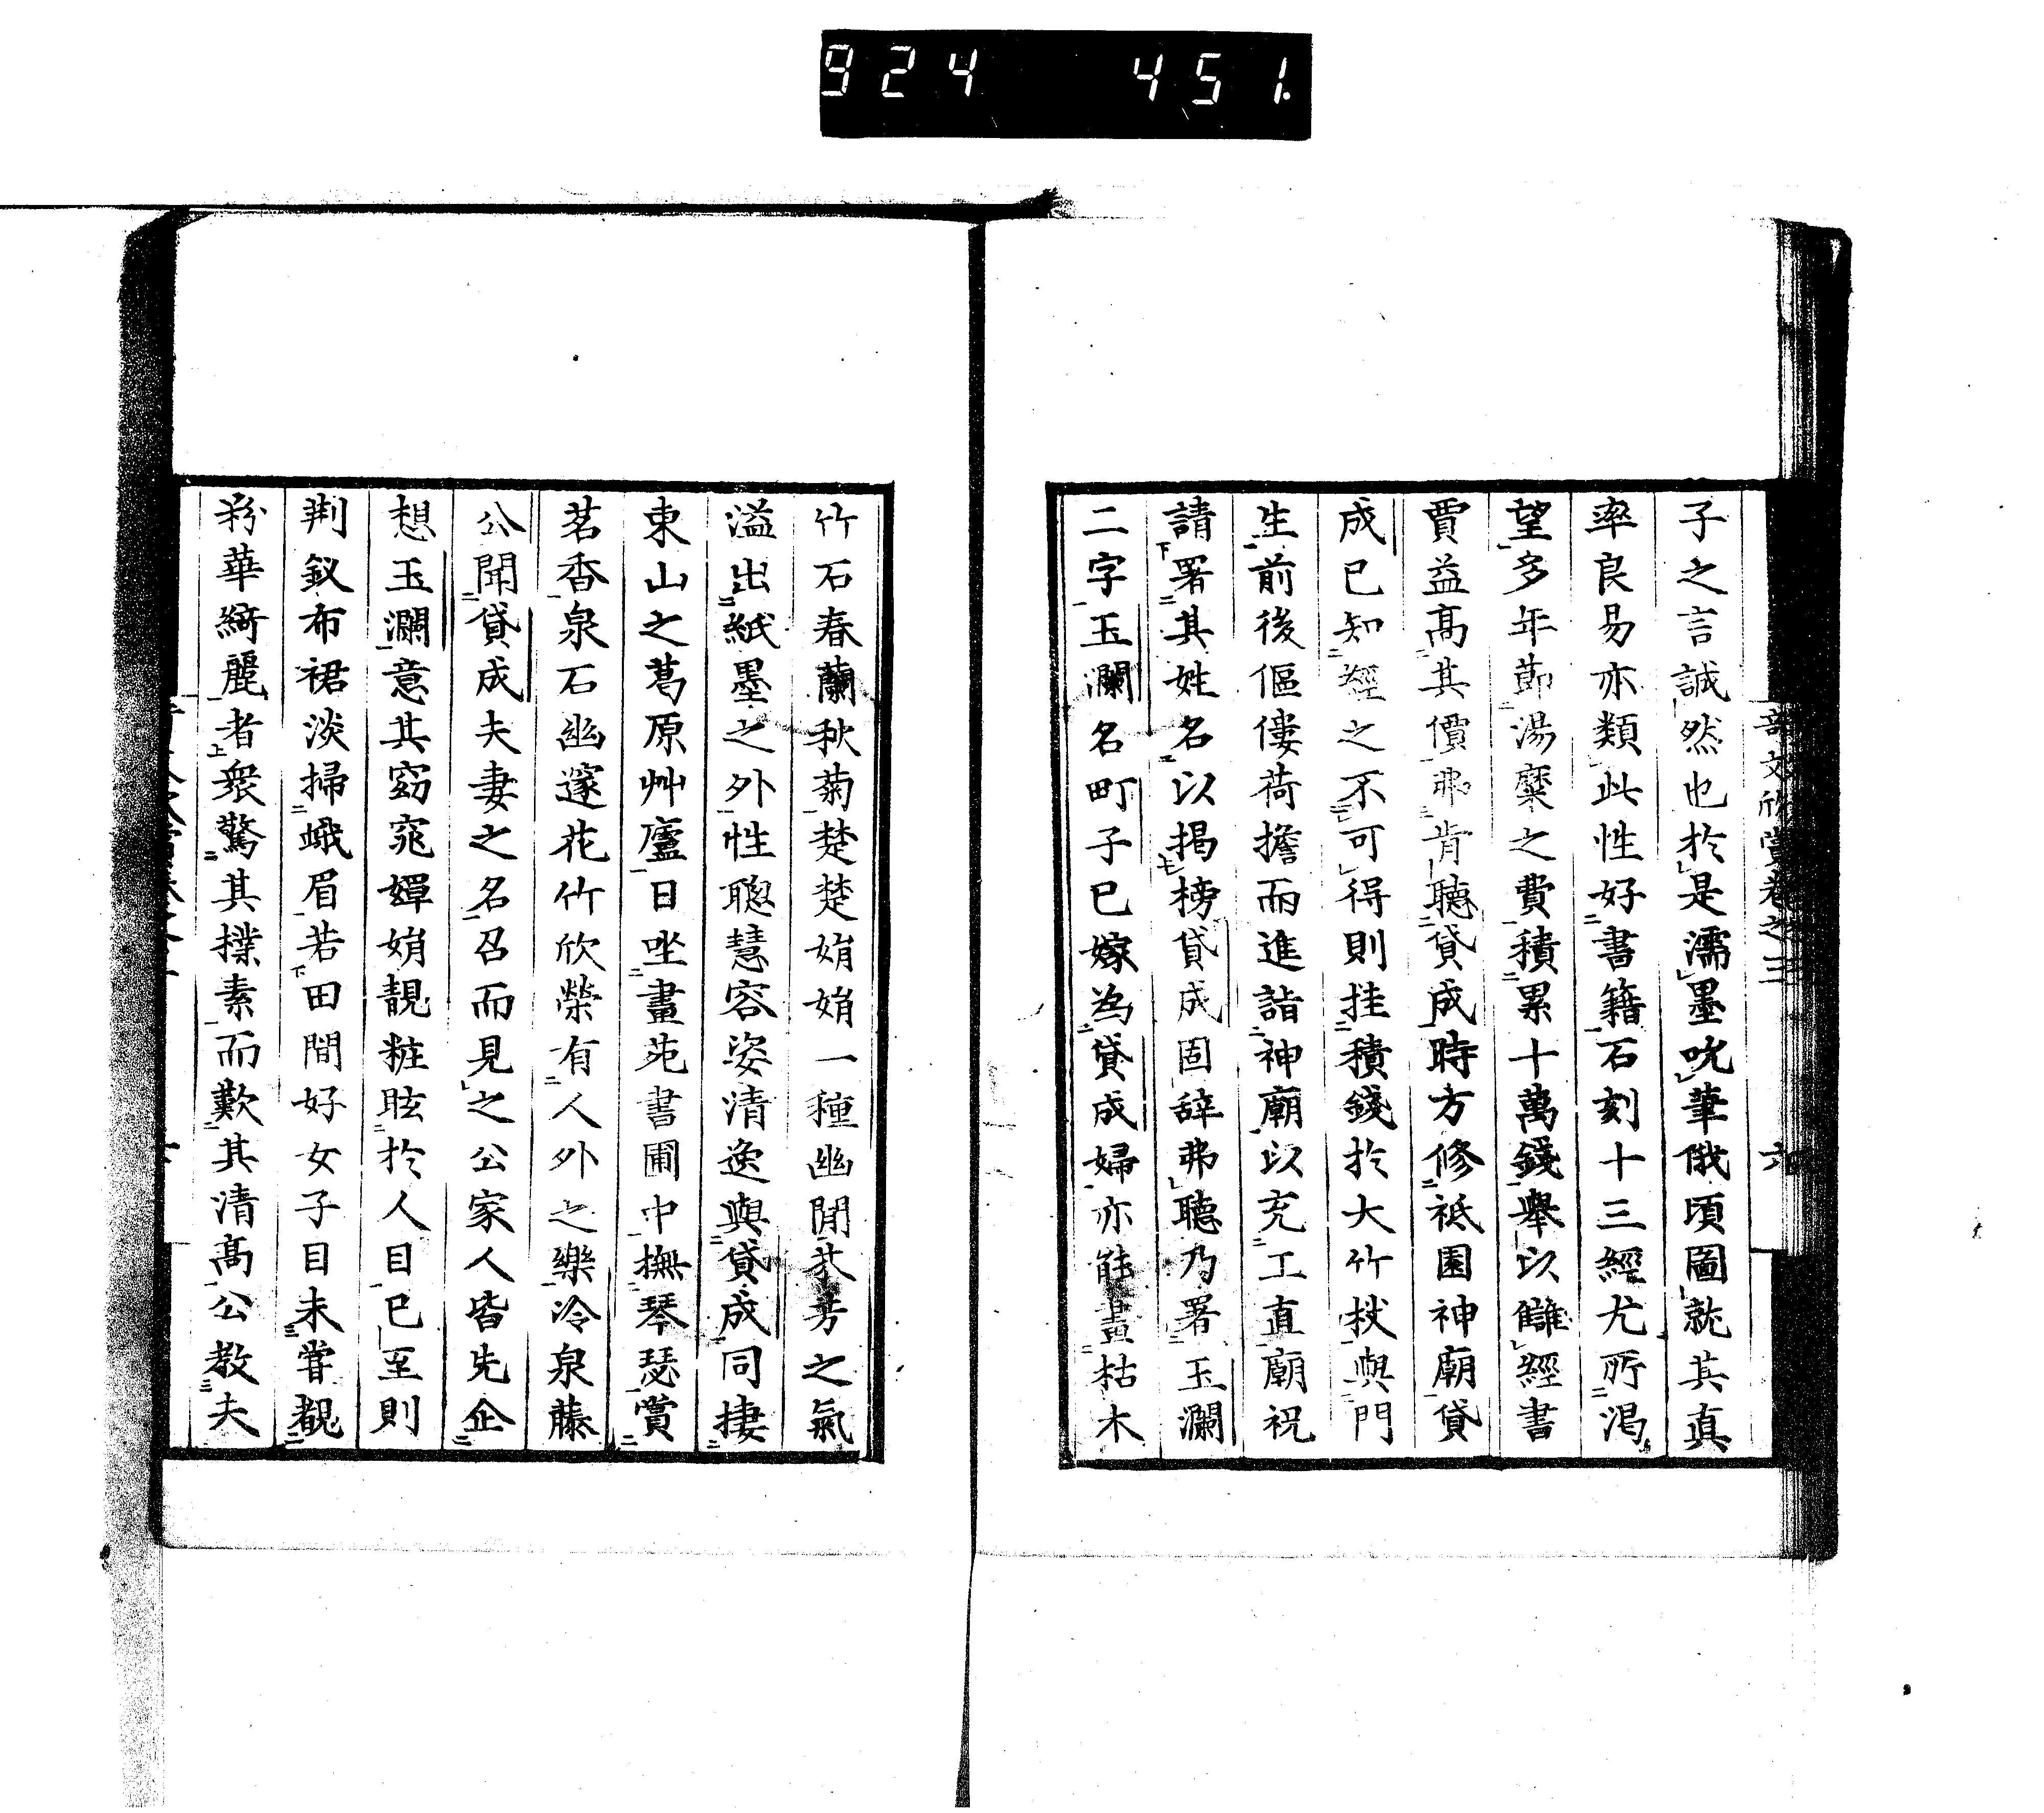 924 451
奇文欣賞卷之三 六
子之言誠然也於是濡墨吮筆俄頃圖就其真
率良易亦類此性好書籍石刻十三經尤所渇
望多年節湯藥之費積累十萬錢舉以讎經書
賈益髙其價弗肯聽貸成時方修祗園神廟貸
成已知經之不可得則挂積錢於大竹杖與門
生前後傴僂荷擔而進詣神廟以充工直廟祝
請署其姓名以揭榜貸成固辞弗聽乃署玉瀾
二字玉瀾名町子已嫁為貸成婦亦能畫枯木
竹石春蘭秋菊楚楚娟娟一種幽閒芬芳之氣
溢出紙墨之外性聰慧容姿清逸與貸成同棲
東山之葛原艸廬日坐畫苑書圃中撫琴瑟賞
茗香泉石幽邃花竹欣榮有人外之樂冷泉藤
公聞貸成夫妻之名召而見之公家人皆先企
想玉瀾意其窈窕嬋娟靚粧眩於人目已至則
荆釵布裙淡掃蛾眉若田間好女子目未嘗覩
紛華綺麗者衆驚其撲素而歎其清髙公教夫